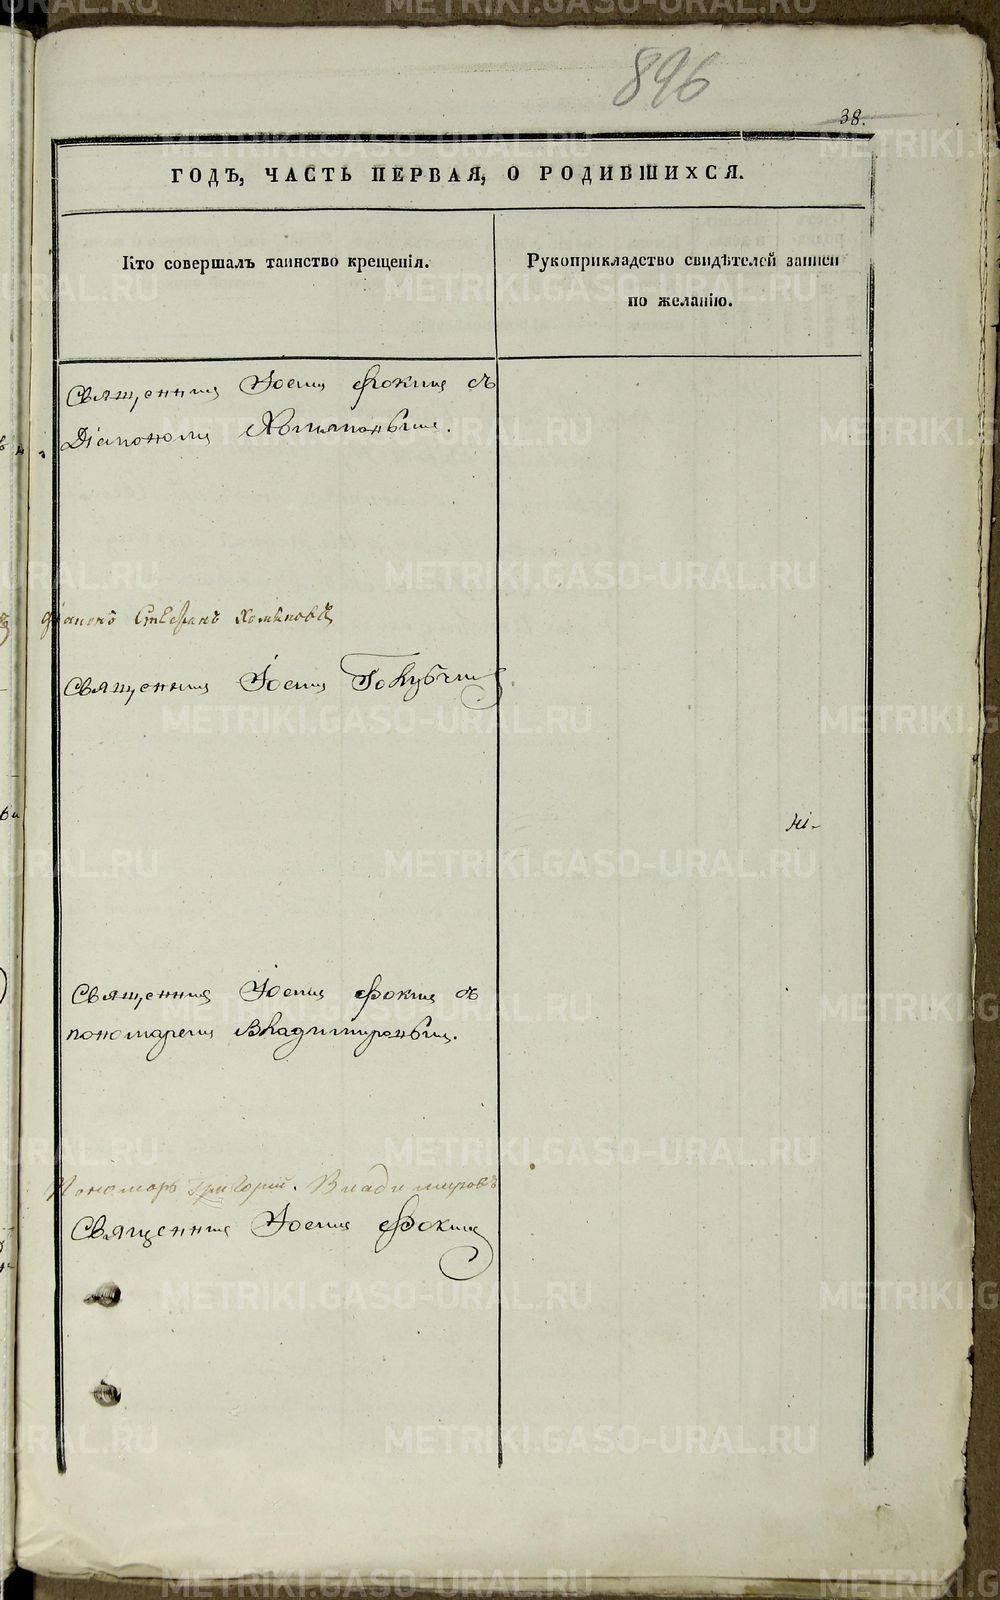 896
38.
ГОДЪ, ЧАСТЬ ПЕРВАЯ, О РОДИВШИХСЯ.
Кто совершалъ таинство крещенія.
Рукоприкладство свидѣтелей записи
по желанію.
Священникъ Іоаннъ Фокинъ съ
Діакономъ Хомяковымъ.
Діаконъ Стефанъ Хомяковъ
Священникъ Іоаннъ
Священникъ Іоаннъ Фокинъ съ
пономаремъ Владимировымъ.
Пономарь Григорій Владимировъ
Священникъ Іоаннъ Фокинъ
METRIKI.GASO-URAL.RU